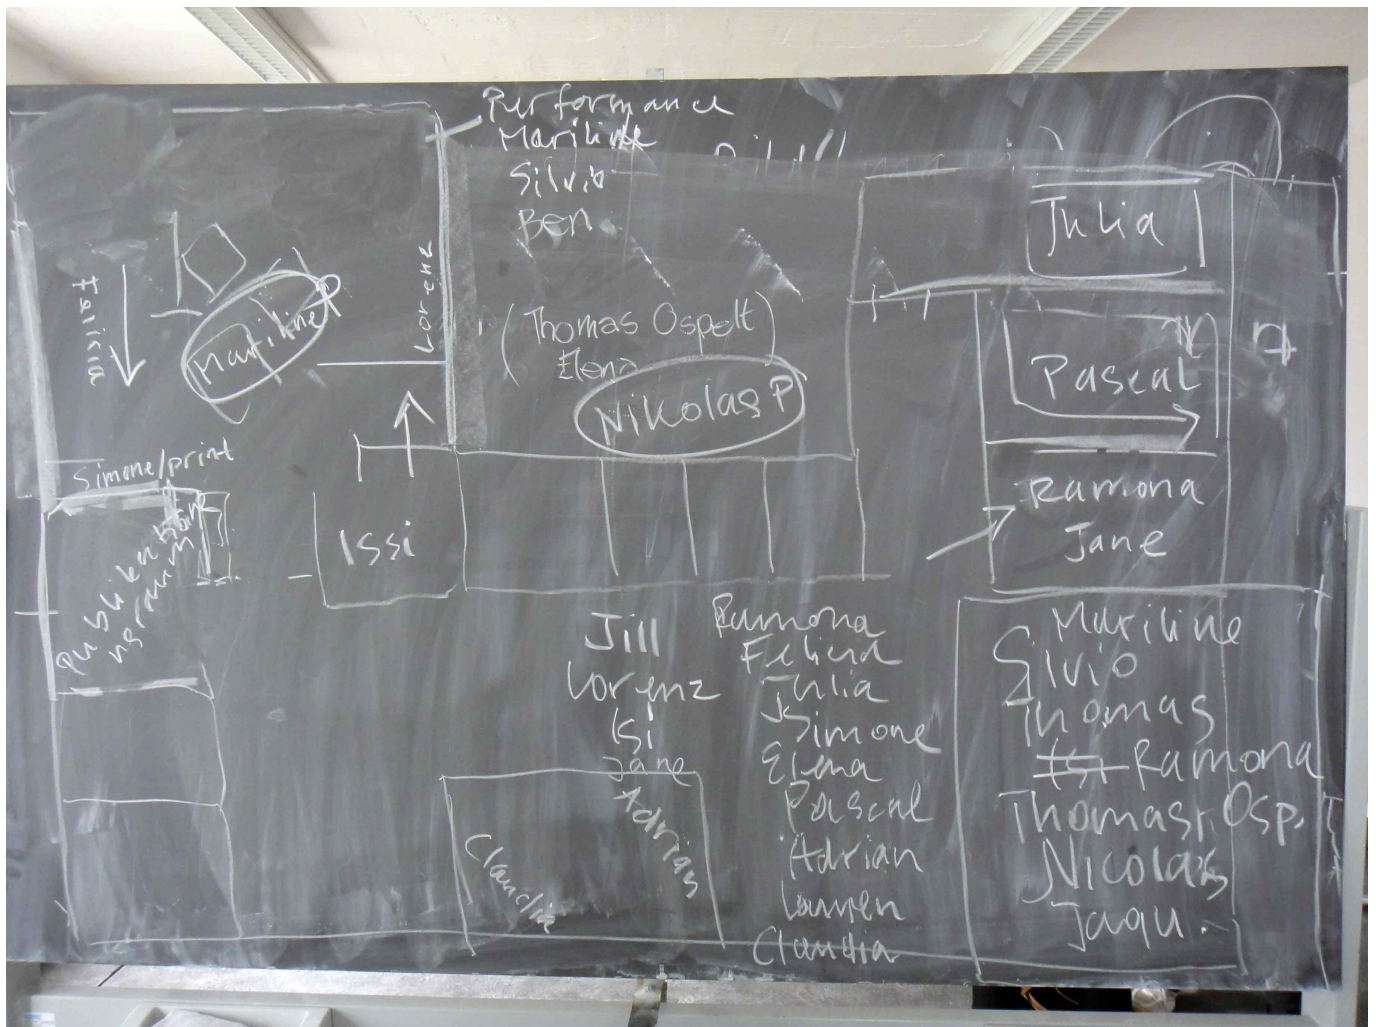 Performance
Mariline
Silvio
Ben
Julia
Felicia
Mariline
Lorenz
(Thomas Ospelt
Elena)
Nikolas P
Pascal
Simone/print
Issi
Ramona
Jane
Jill
Lorenz
Isi
Jane
Adrian
Claudia
Ramona
Felicia
Julia
Simone
Elena
Pascal
Adrian
Lauren
Claudia
Mariline
Silvio
Thomas
Isi Ramona
Thomas Osp.
Nicolas
Jaqu.